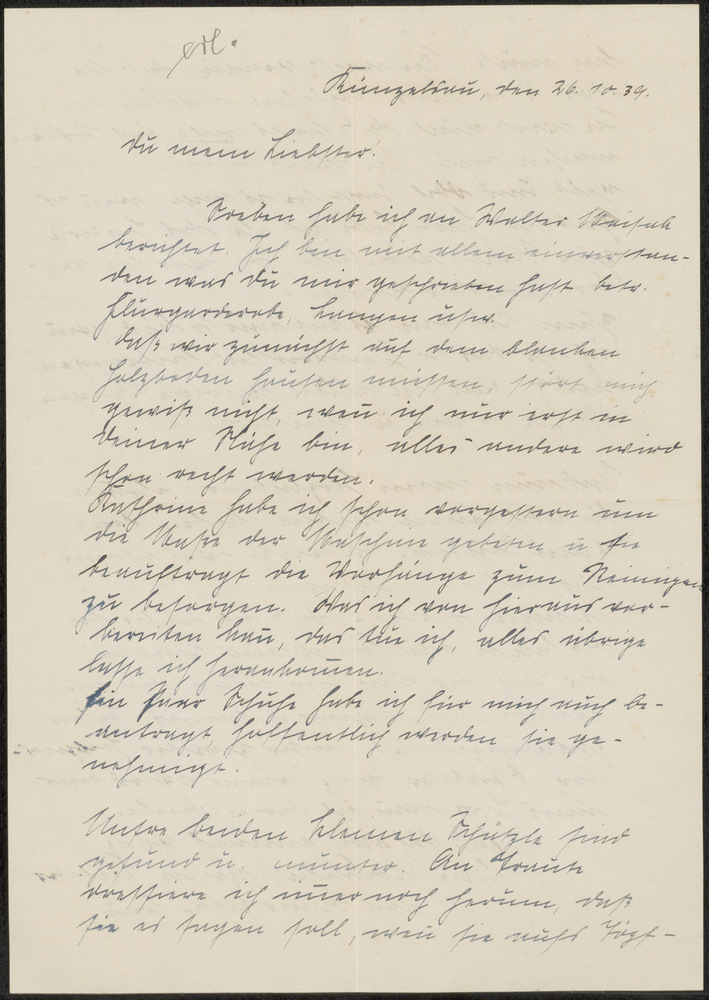 erl.
Künzelsau, den 26. 10. 39.
Du mein Liebster!
Soeben habe ich an Walter
berichtet. Ich bin mit allem einverstan-
den was Du mir geschrieben hast betr.
Flurgarderobe, Lampen usw.
Daß wir zunächst auf dem blanken
Holzboden hausen müssen, stört mich
gewiß nicht, wen̄ ich nur erst in
Deiner Nähe bin, alles andere wird
schon recht werden.
Kathrine habe ich schon vorgestern um
die Maße der gebeten u. sie
beauftragt die Vorhänge zum Reinigen
zu besorgen. Was ich von hieraus vor-
bereiten kan̄, das tue ich, alles übrige
lasse ich herankom̄en.
Ein Paar Schuhe habe ich für mich auch be-
antragt hoffentlich werden sie ge-
nehmigt.
Unsre beiden kleinen Schätzle sind
gesund u. munter. An Traute
dressiere ich im̄er noch herum, daß
sie es sagen soll, wen̄ sie aufs Töpf-